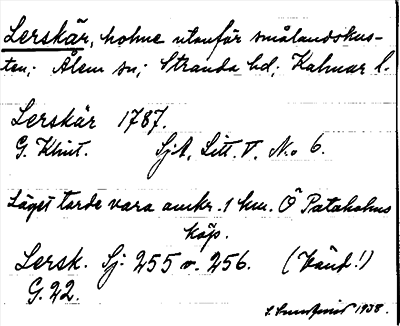 Lerskär, holme utanför smålandskus-
ten; Ålem sn; Stranda hd; Kalmar l.
Lerskär 1787.
G. Klint. SjA, Litt. V. No 6.
Läget torde vara omkr. 1 km. Ö Pataholms
köp.
Lersk. Sj: 255 o. 256. (Känd!)
G. 22.
1938.